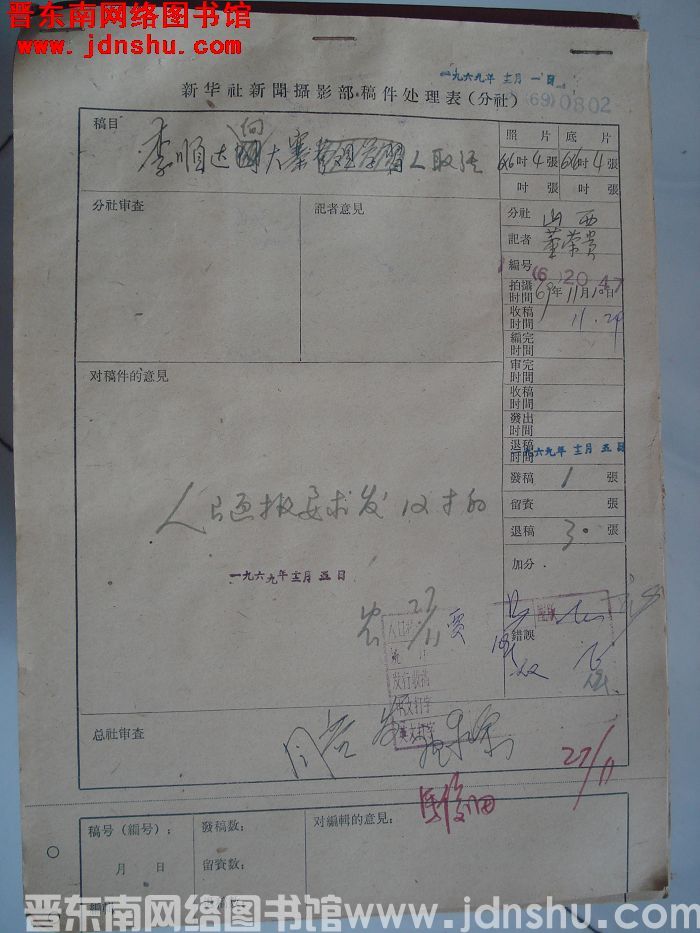 晋东南网络图书馆
www.jdnshu.com
一九六九年 十二月 一日
新华社新聞攝影部稿件处理表（分社） (69)0802
稿目
李順达向大寨人取经
照片 底片
6×6吋 4張 6×6吋 4張
吋 張 吋 張
分社审查
記者意見
分社 山西
記者 董荣贵
編号 (6)2047
拍攝时間 69年11月10日
收稿时間 11.24
編完时間
审完时間
收稿时間
發出时間
退稿时間 一九六九年 十二月 五日
对稿件的意見
發稿 1 張
留資 張
退稿 3 張
加分
錯誤
人民画报要求发12才的
一九六九年 十二月 五日
27/11
发行收稿
英文打字
总社审查
同意发
27/11
稿号（編号）：
月 日
發稿数：
留資数：
对編輯的意見：
晋东南网络图书馆 www.jdnshu.com